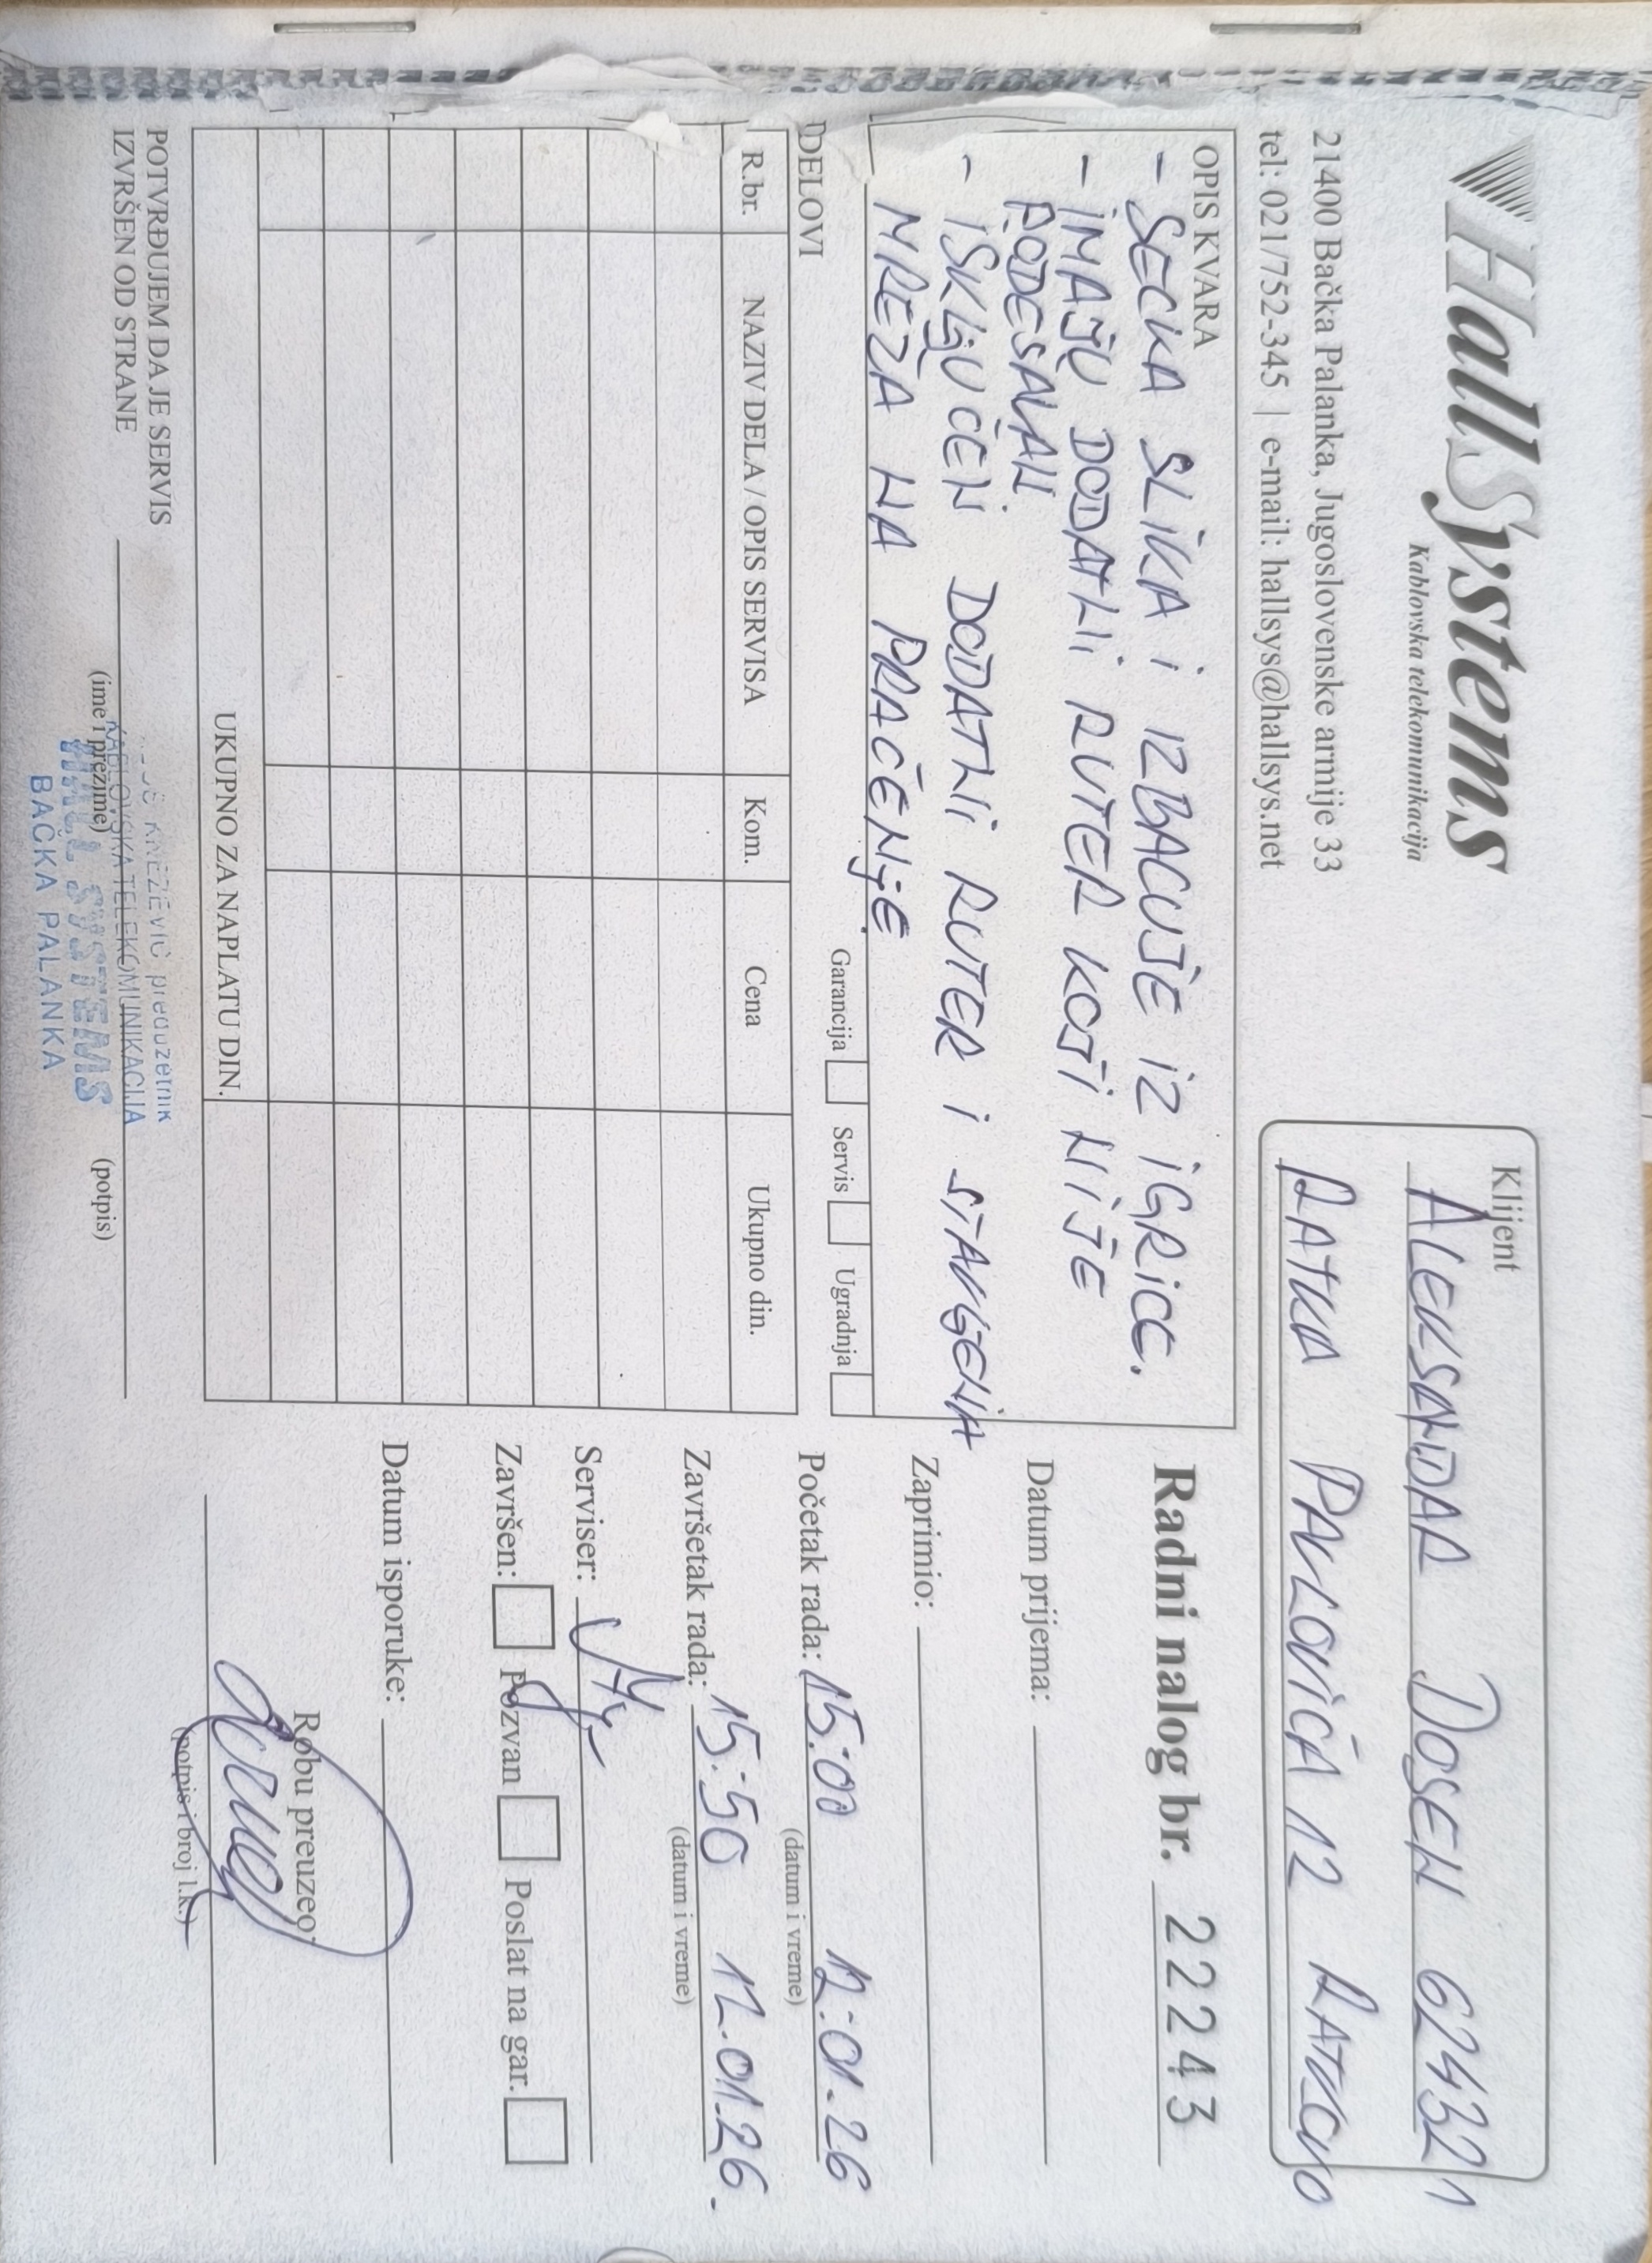 HallSystems
Kablovska telekomunikacija
21400 Bačka Palanka, Jugoslovenske armije 33
tel: 021/752-345 | e-mail: hallsys@hallsys.net
Klijent
ALEKSANDAR DOŠEN 62432 1
RATKA PAVLOVIĆA 12
OPIS KVARA
- SECKA SLIKA I IZBACUJE IZ IGRICE.
- IMAJU DODATNI RUTER KOJI NIJE
PODEŠAVAN
- ISKLJUČEN DODATNI RUTER I STAVLJENA
MREŽA NA PRAĆENJE.
Garancija Servis Ugradnja
DELOVI
R.br. NAZIV DELA / OPIS SERVISA Kom. Cena Ukupno din.
UKUPNO ZA NAPLATU DIN.
POTVRĐUJEM DA JE SERVIS
IZVRŠEN OD STRANE
(ime i prezime) (potpis)
preduzetnik
KABLOVSKA TELEKOMUNIKACIJA
HALL SYSTEMS
BAČKA PALANKA
Radni nalog br. 22243
Datum prijema:
Zaprimio:
Početak rada: 15:00 12.01.26
(datum i vreme)
Završetak rada: 15:50 12.01.26.
(datum i vreme)
Serviser:
Završen: Pozvan Poslat na gar.
Datum isporuke:
Robu preuzeo:
(potpis i broj l.k.)